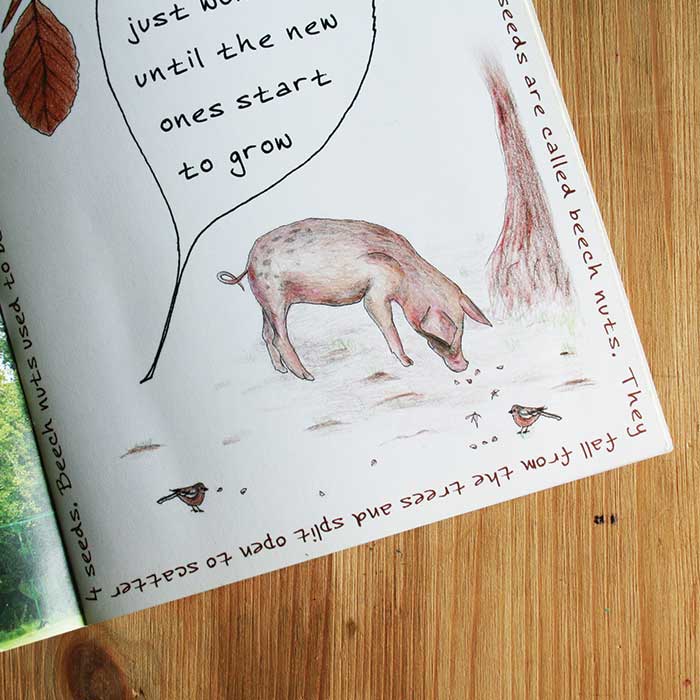 just
until the new
ones start
to grow
seeds are called beech nuts. They
fall from the trees and split open to scatter
4 seeds. Beech nuts used to